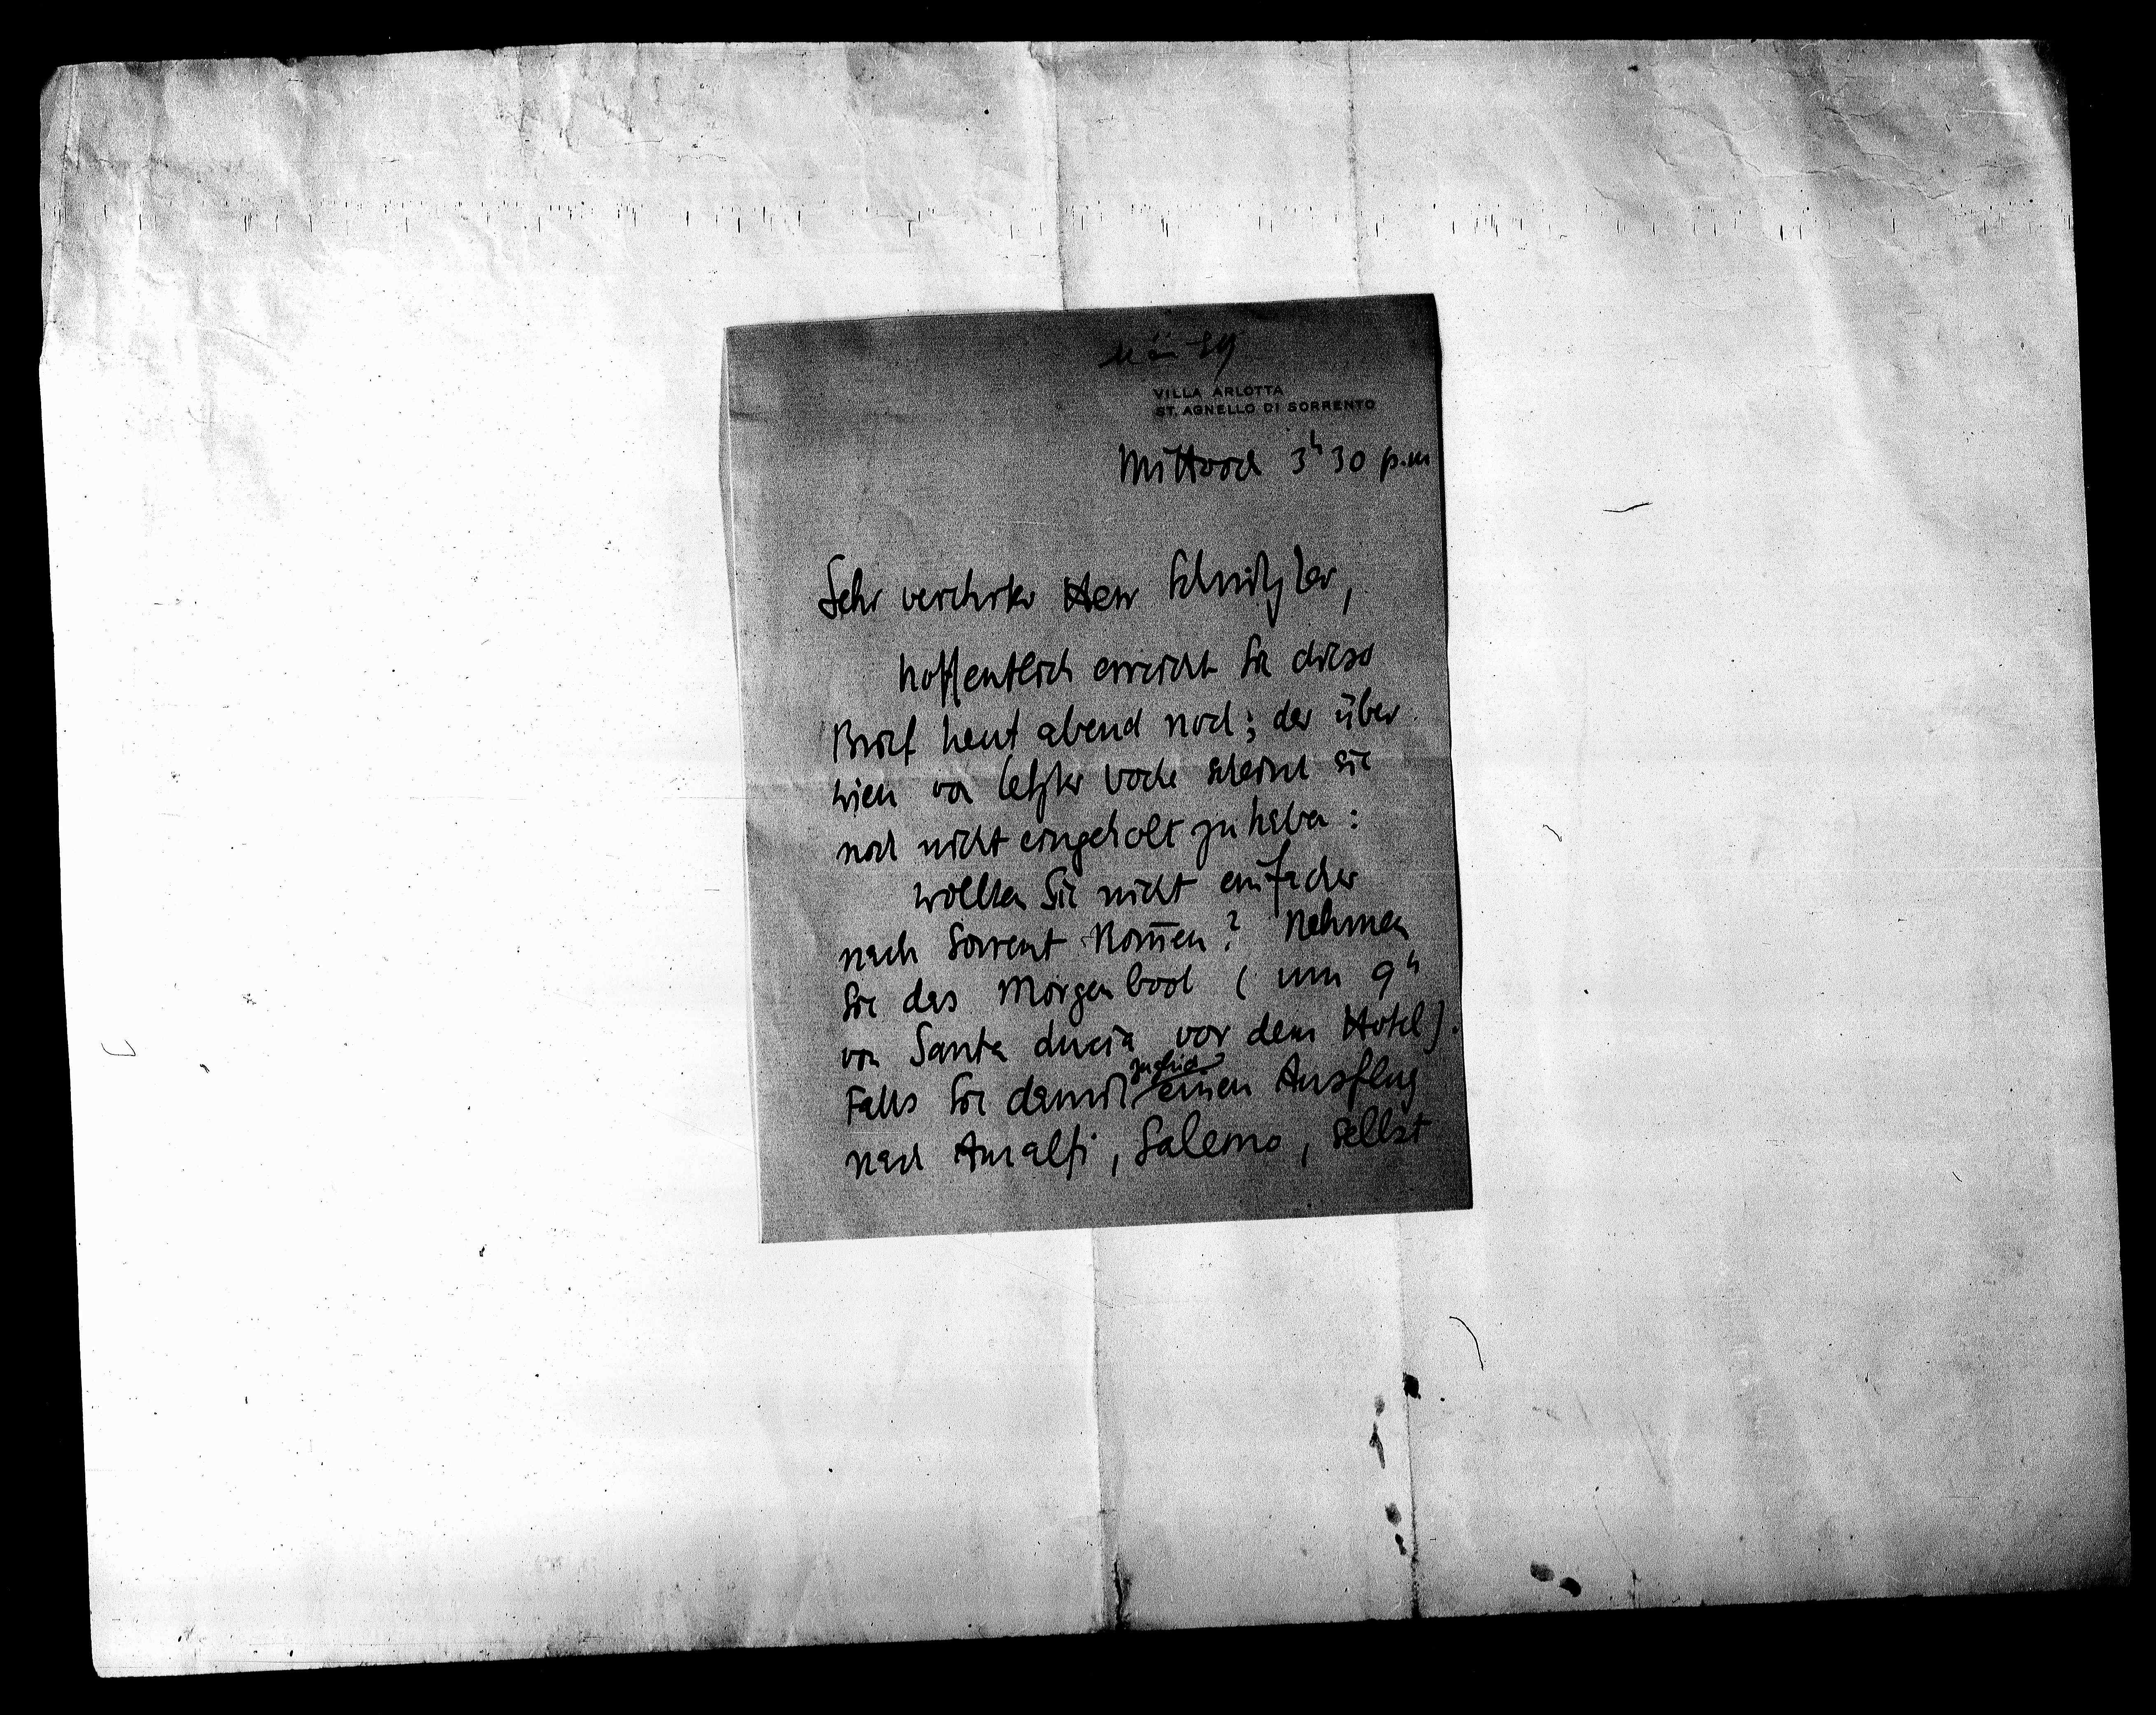 März
VILLA ARLOTTA
ST. AGNELLO DI SORRENTO
Mittwoch 3h 30 p.m
Sehr verehrter Herr Schnitzler,
hoffentlich erreicht Sie dieser
Brief heut abend noch; der über
Wien von letzter Woche scheint Sie
noch nicht eingeholt zu haben:
wollten Sie nicht einfacher
nach Sorrent kom̄en? Nehmen
Sie das Morgenboot (um 9h
von Santa Lucia vor dem Hotel).
Falls Sie damit zugleich einen Ausflug
nach Amalfi, Salerno, selbst